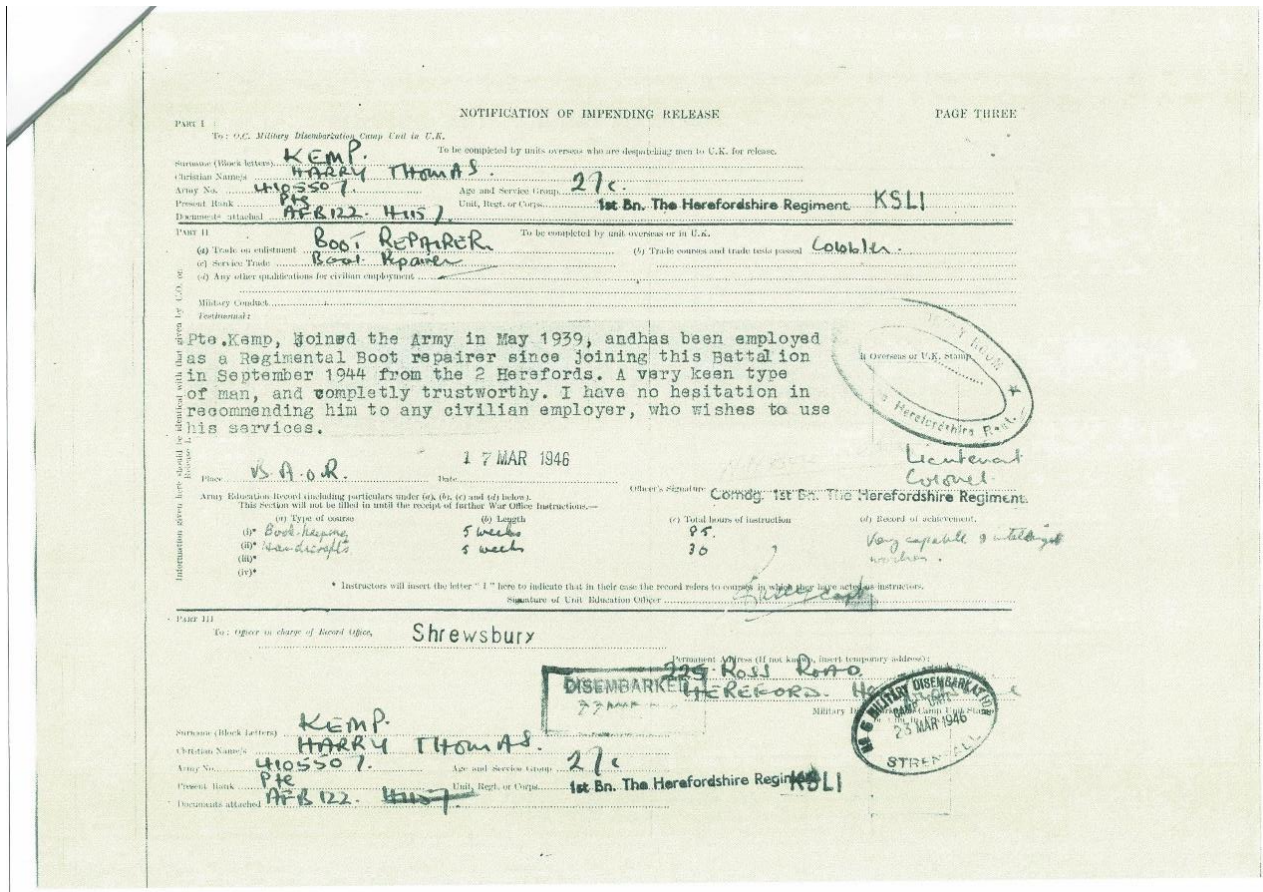 NOTIFICATION OF IMPENDING RELEASE PAGE THREE
PART I
To: O.C. Military Disembarkation Camp Unit in U.K.
To be completed by units overseas who are despatching men to U.K. for release.
Surname (Block letters) KEMP.
Christian Name/s HARRY THOMAS.
Army No. 4105507. Age and Service Group 27c.
Present Rank Pte Unit, Regt. or Corps. 1st Bn. The Herefordshire Regiment KSLI
Documents attached AFB 122. H1157.
PART II To be completed by unit overseas or in U.K.
(a) Trade on enlistment BOOT REPAIRER (b) Trade courses and trade tests passed Cobbler.
(c) Service Trade Boot Repairer
(d) Any other qualifications for civilian employment
Military Conduct
Testimonial:
Pte.Kemp, joined the Army in May 1939, andhas been employed
as a Regimental Boot repairer since joining this Battalion
in September 1944 from the 2 Herefords. A very keen type
of man, and completly trustworthy. I have no hesitation in
recommending him to any civilian employer, who wishes to use
his services.
Information given here should be identical with that given by C.O. on
Overseas or U.K. Stamp
Herefordshire Regt.
Place B.A.O.R. Date 17 MAR 1946
Lieutenant
Colonel.
Officer's Signature Comdg. 1st Bn. The Herefordshire Regiment.
Army Education Record (including particulars under (a), (b), (c) and (d) below).
This Section will not be filled in until the receipt of further War Office Instructions.—
(a) Type of course (b) Length (c) Total hours of instruction (d) Record of achievement.
(i)* Book-keeping 5 weeks 85. Very capable & intelligent
(ii)* Handicrafts 5 weeks 30 worker.
(iii)*
(iv)*
* Instructors will insert the letter "I" here to indicate that in their case the record refers to courses in which they have acted as instructors.
Signature of Unit Education Officer
PART III
To: Officer in charge of Record Office, Shrewsbury
Permanent Address (If not known, insert temporary address):
225 ROSS ROAD
HEREFORD.
DISEMBARKED
Military Camp Unit Stamp
No 6 MILITARY DISEMBARKATION
CAMP UNIT
23 MAR 1946
Surname (Block Letters) KEMP.
Christian Name/s HARRY THOMAS.
Army No. 4105507. Age and Service Group 27c
Present Rank Pte Unit, Regt. or Corps. 1st Bn. The Herefordshire Regiment KSLI
Documents attached AFB 122. H1157